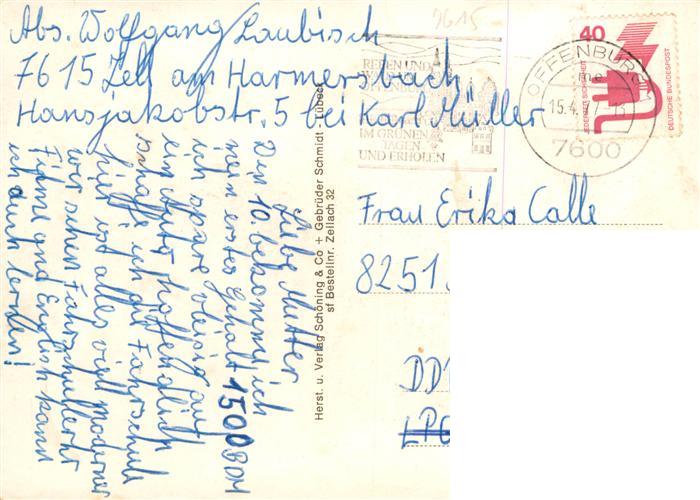 Abs. Wolfgang Laubisch
7615 Zell am Harmersbach
Hansjakobstr. 5 bei Karl Müller
9615
REBEN UND
OFFENBURG
IM GRÜNEN
TAGEN
UND ERHOLEN
OFFENBURG 1
15.4.
7600
40
JEDERZEIT SICHERHEIT
DEUTSCHE BUNDESPOST
Frau Erika Calle
8251
DD
LPG
Herst. u. Verlag Schöning & Co + Gebrüder Schmidt - Lübeck
sf Bestellnr. Zellach 32
Liebe Mutter
Den 10 bekomme ich
mein erstes Gehalt 1500 BDM
ich spare fleisig auf
ein Auto. Hoffendlich
schaffe ich die Fahrschule
hier ist alles viell moderner
wir sehen Fahrschullerhr
Filme und Englisch kann
ich auch lernen!